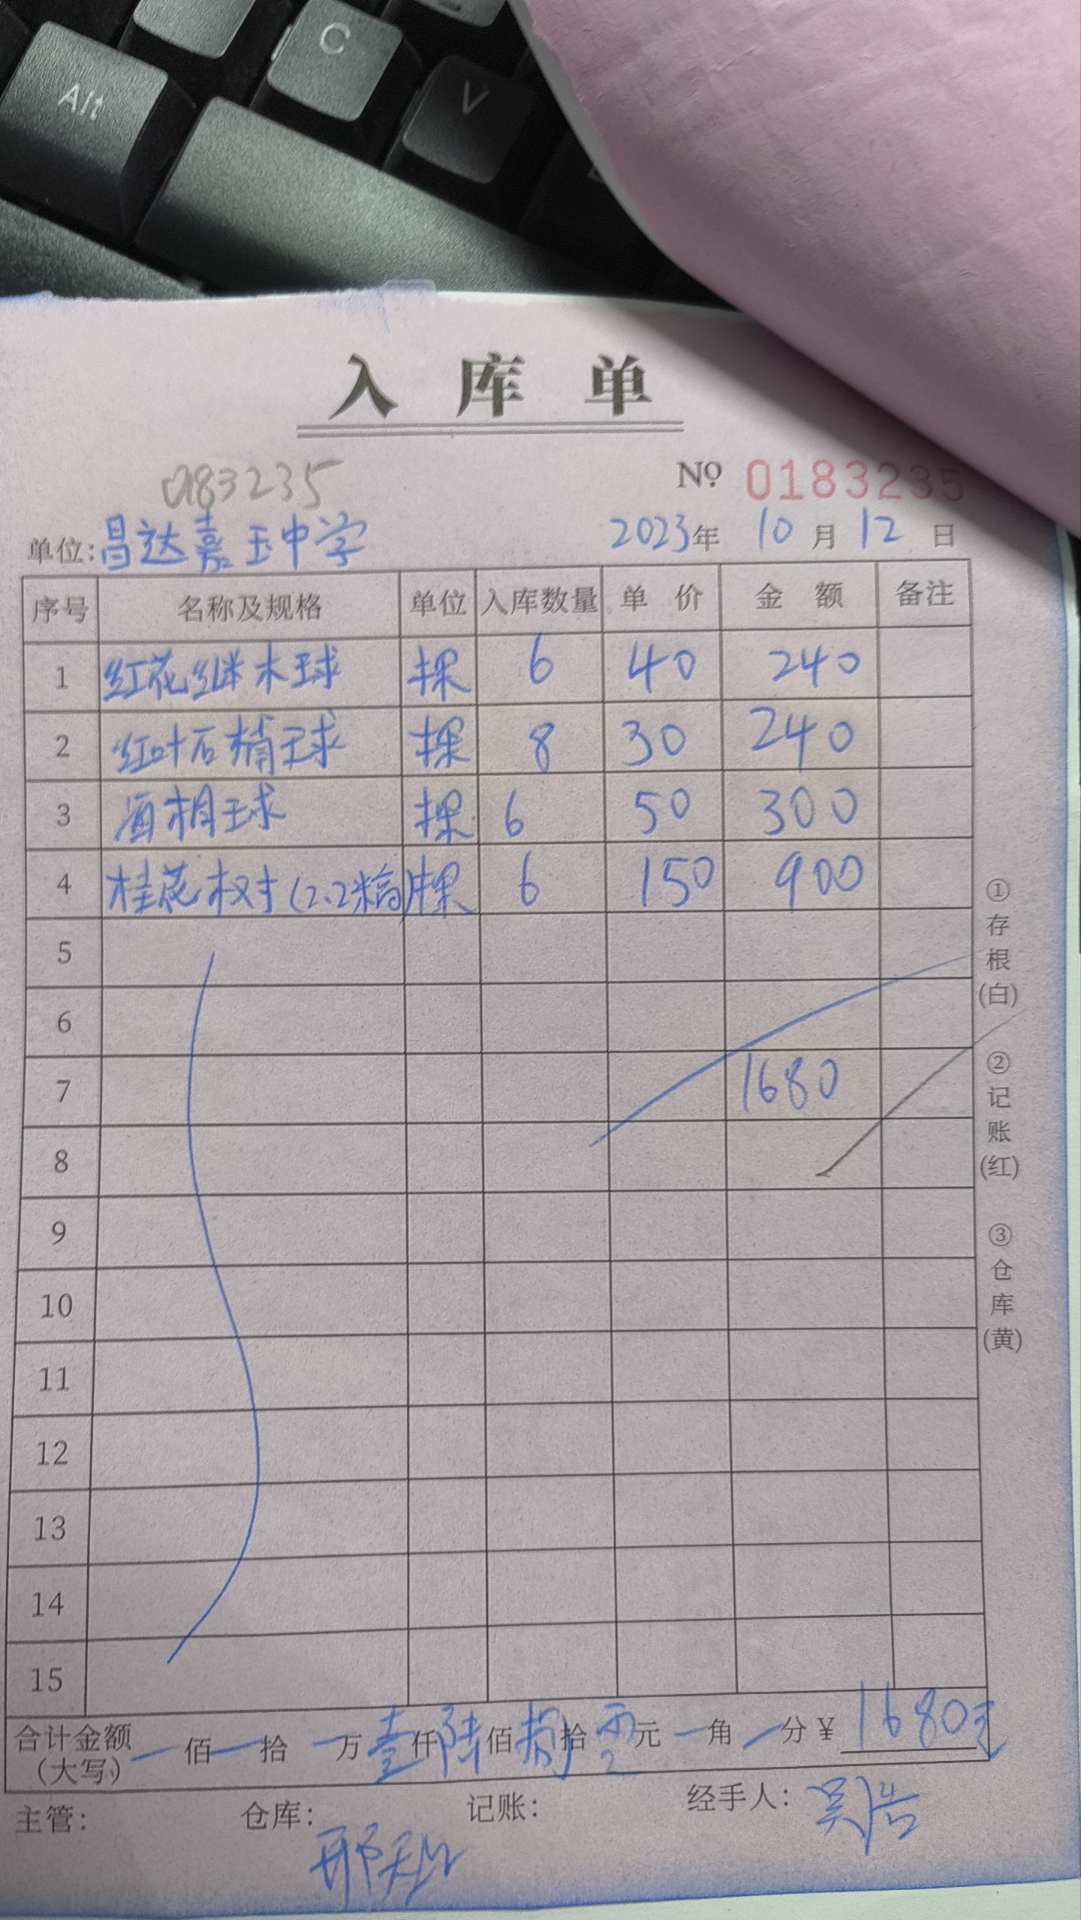 Alt
C
V
入库单
0183235
№ 0183235
单位:昌达嘉玉中学 2023年10月12日
序号 名称及规格 单位 入库数量 单价 金额 备注
1 红花继木球 棵 6 40 240
2 红叶石楠球 棵 8 30 240
3 海桐球 棵 6 50 300
4 桂花树(2.2米高) 棵 6 150 900
5
6
7 1680
8
9
10
11
12
13
14
15
合计金额(大写) 一佰一拾一万壹仟陆佰捌拾零元一角一分 ¥1680元
主管: 仓库: 记账: 经手人:吴浩
①存根(白)
②记账(红)
③仓库(黄)